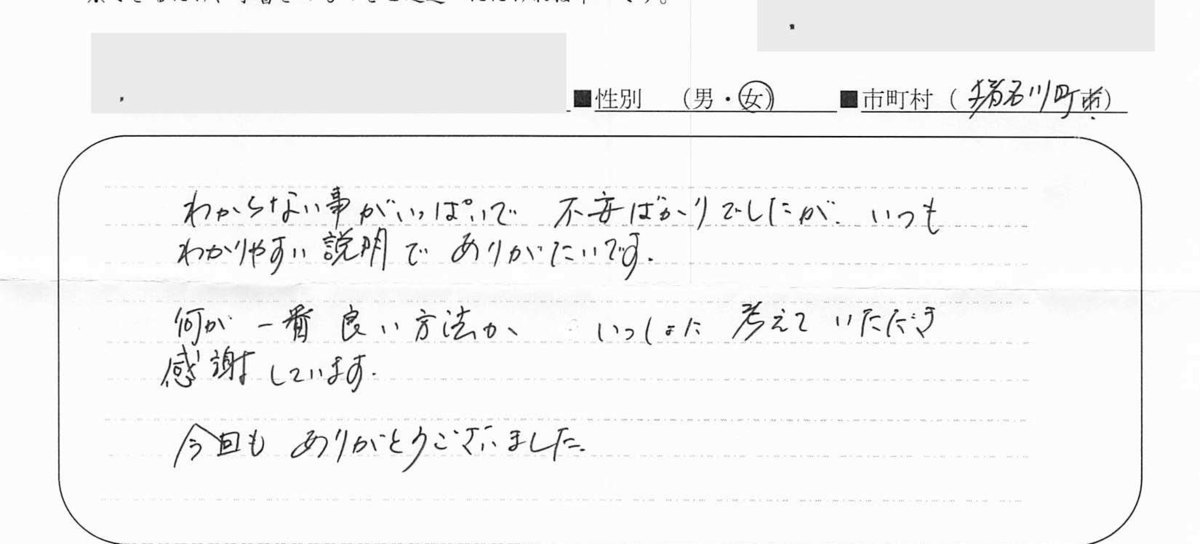 ■性別 （男・女） ■市町村（猪名川町市）
わからない事がいっぱいで 不安ばかりでしたが、いつも
わかりやすい説明で ありがたいです.
何が一番良い方法か、 いっしょに 考えて いただき
感謝しています.
今回も ありがとうございました.